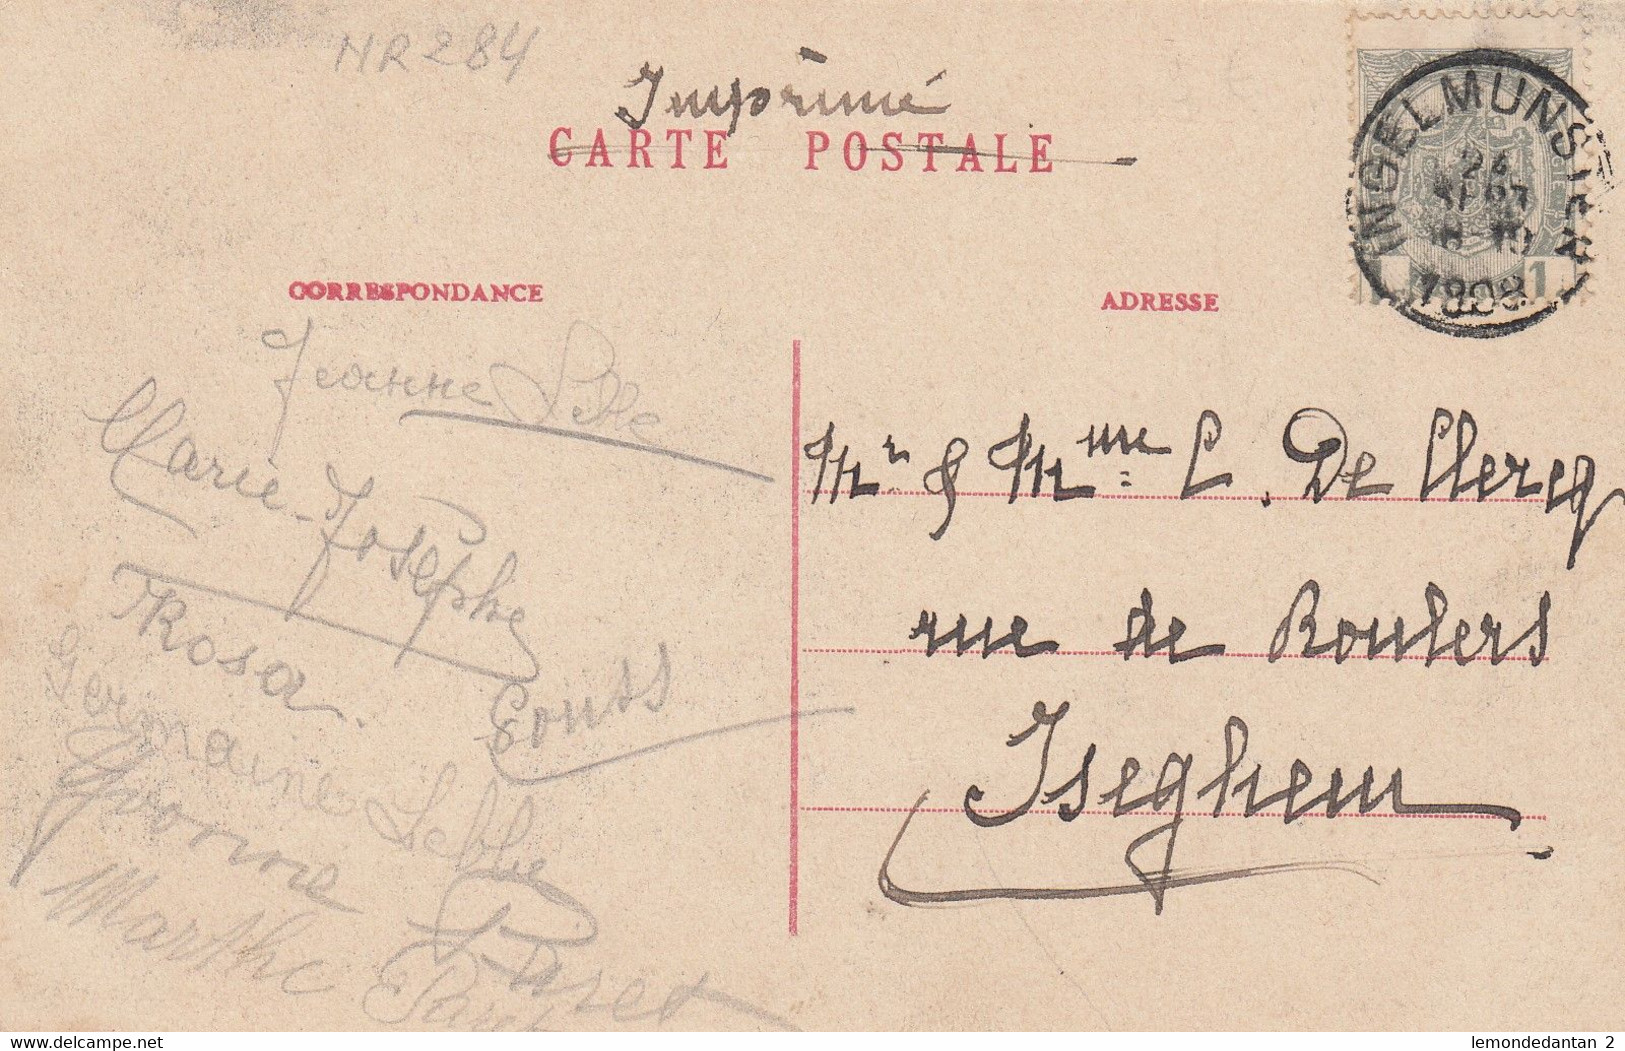 NR 284
Imprimé
CARTE POSTALE
INGELMUNSTER
24 SEPT
1908
1
CORRESPONDANCE
ADRESSE
Jeanne
Marie-Josephe
Rosa
Germaine
Yvonne
Marthe
Mr & Mme L. De Clercq
rue de Roulers
Iseghem
www.delcampe.net
lemondedantan 2